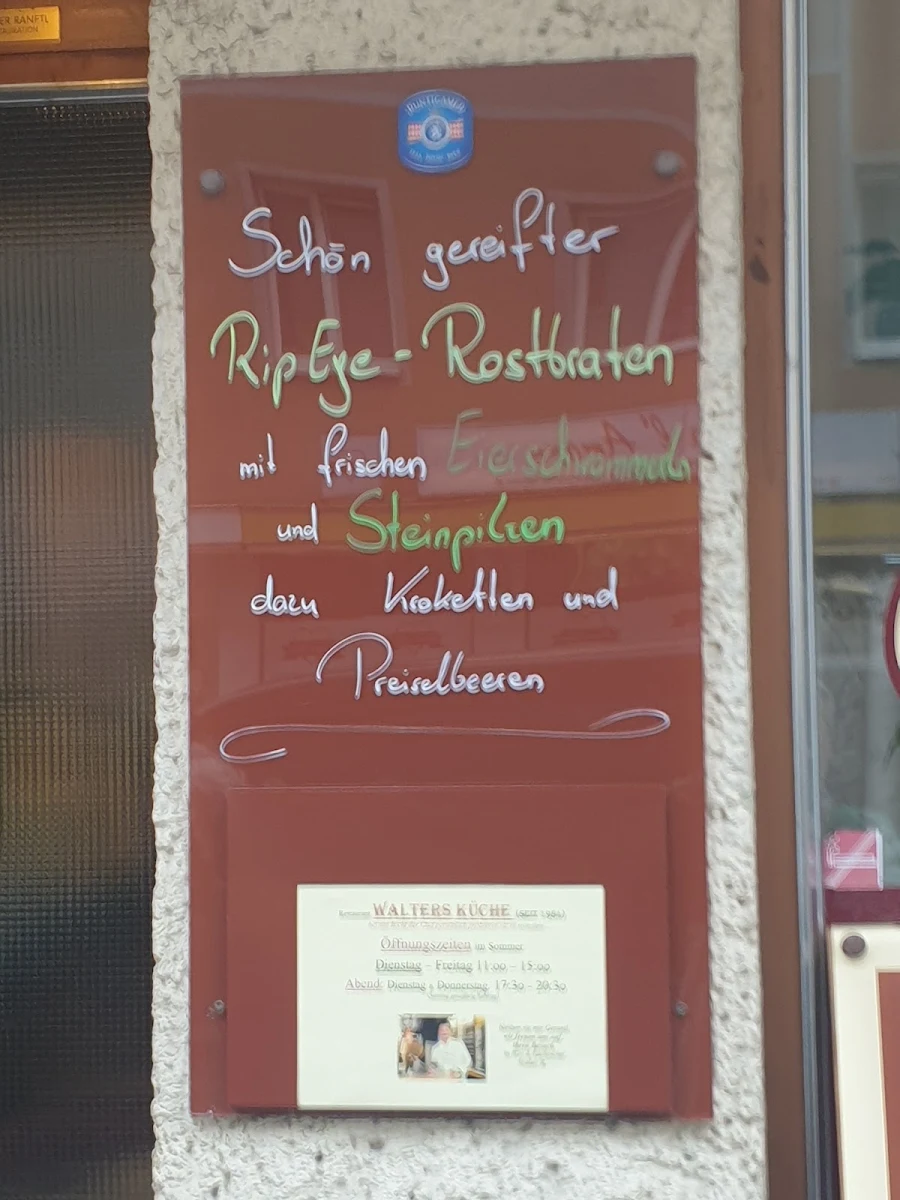 ER RANFTL
PUNTIGAMER
Schön gereifter
RipEye - Rostbraten
mit frischen Eierschwammerln
und Steinpilzen
dazu Kroketten und
Preiselbeeren
Restaurant WALTERS KÜCHE (SEIT 1984)
Öffnungszeiten im Sommer
Dienstag - Freitag 11:00 - 15:00
Abend: Dienstag & Donnerstag 17:30 - 20:30